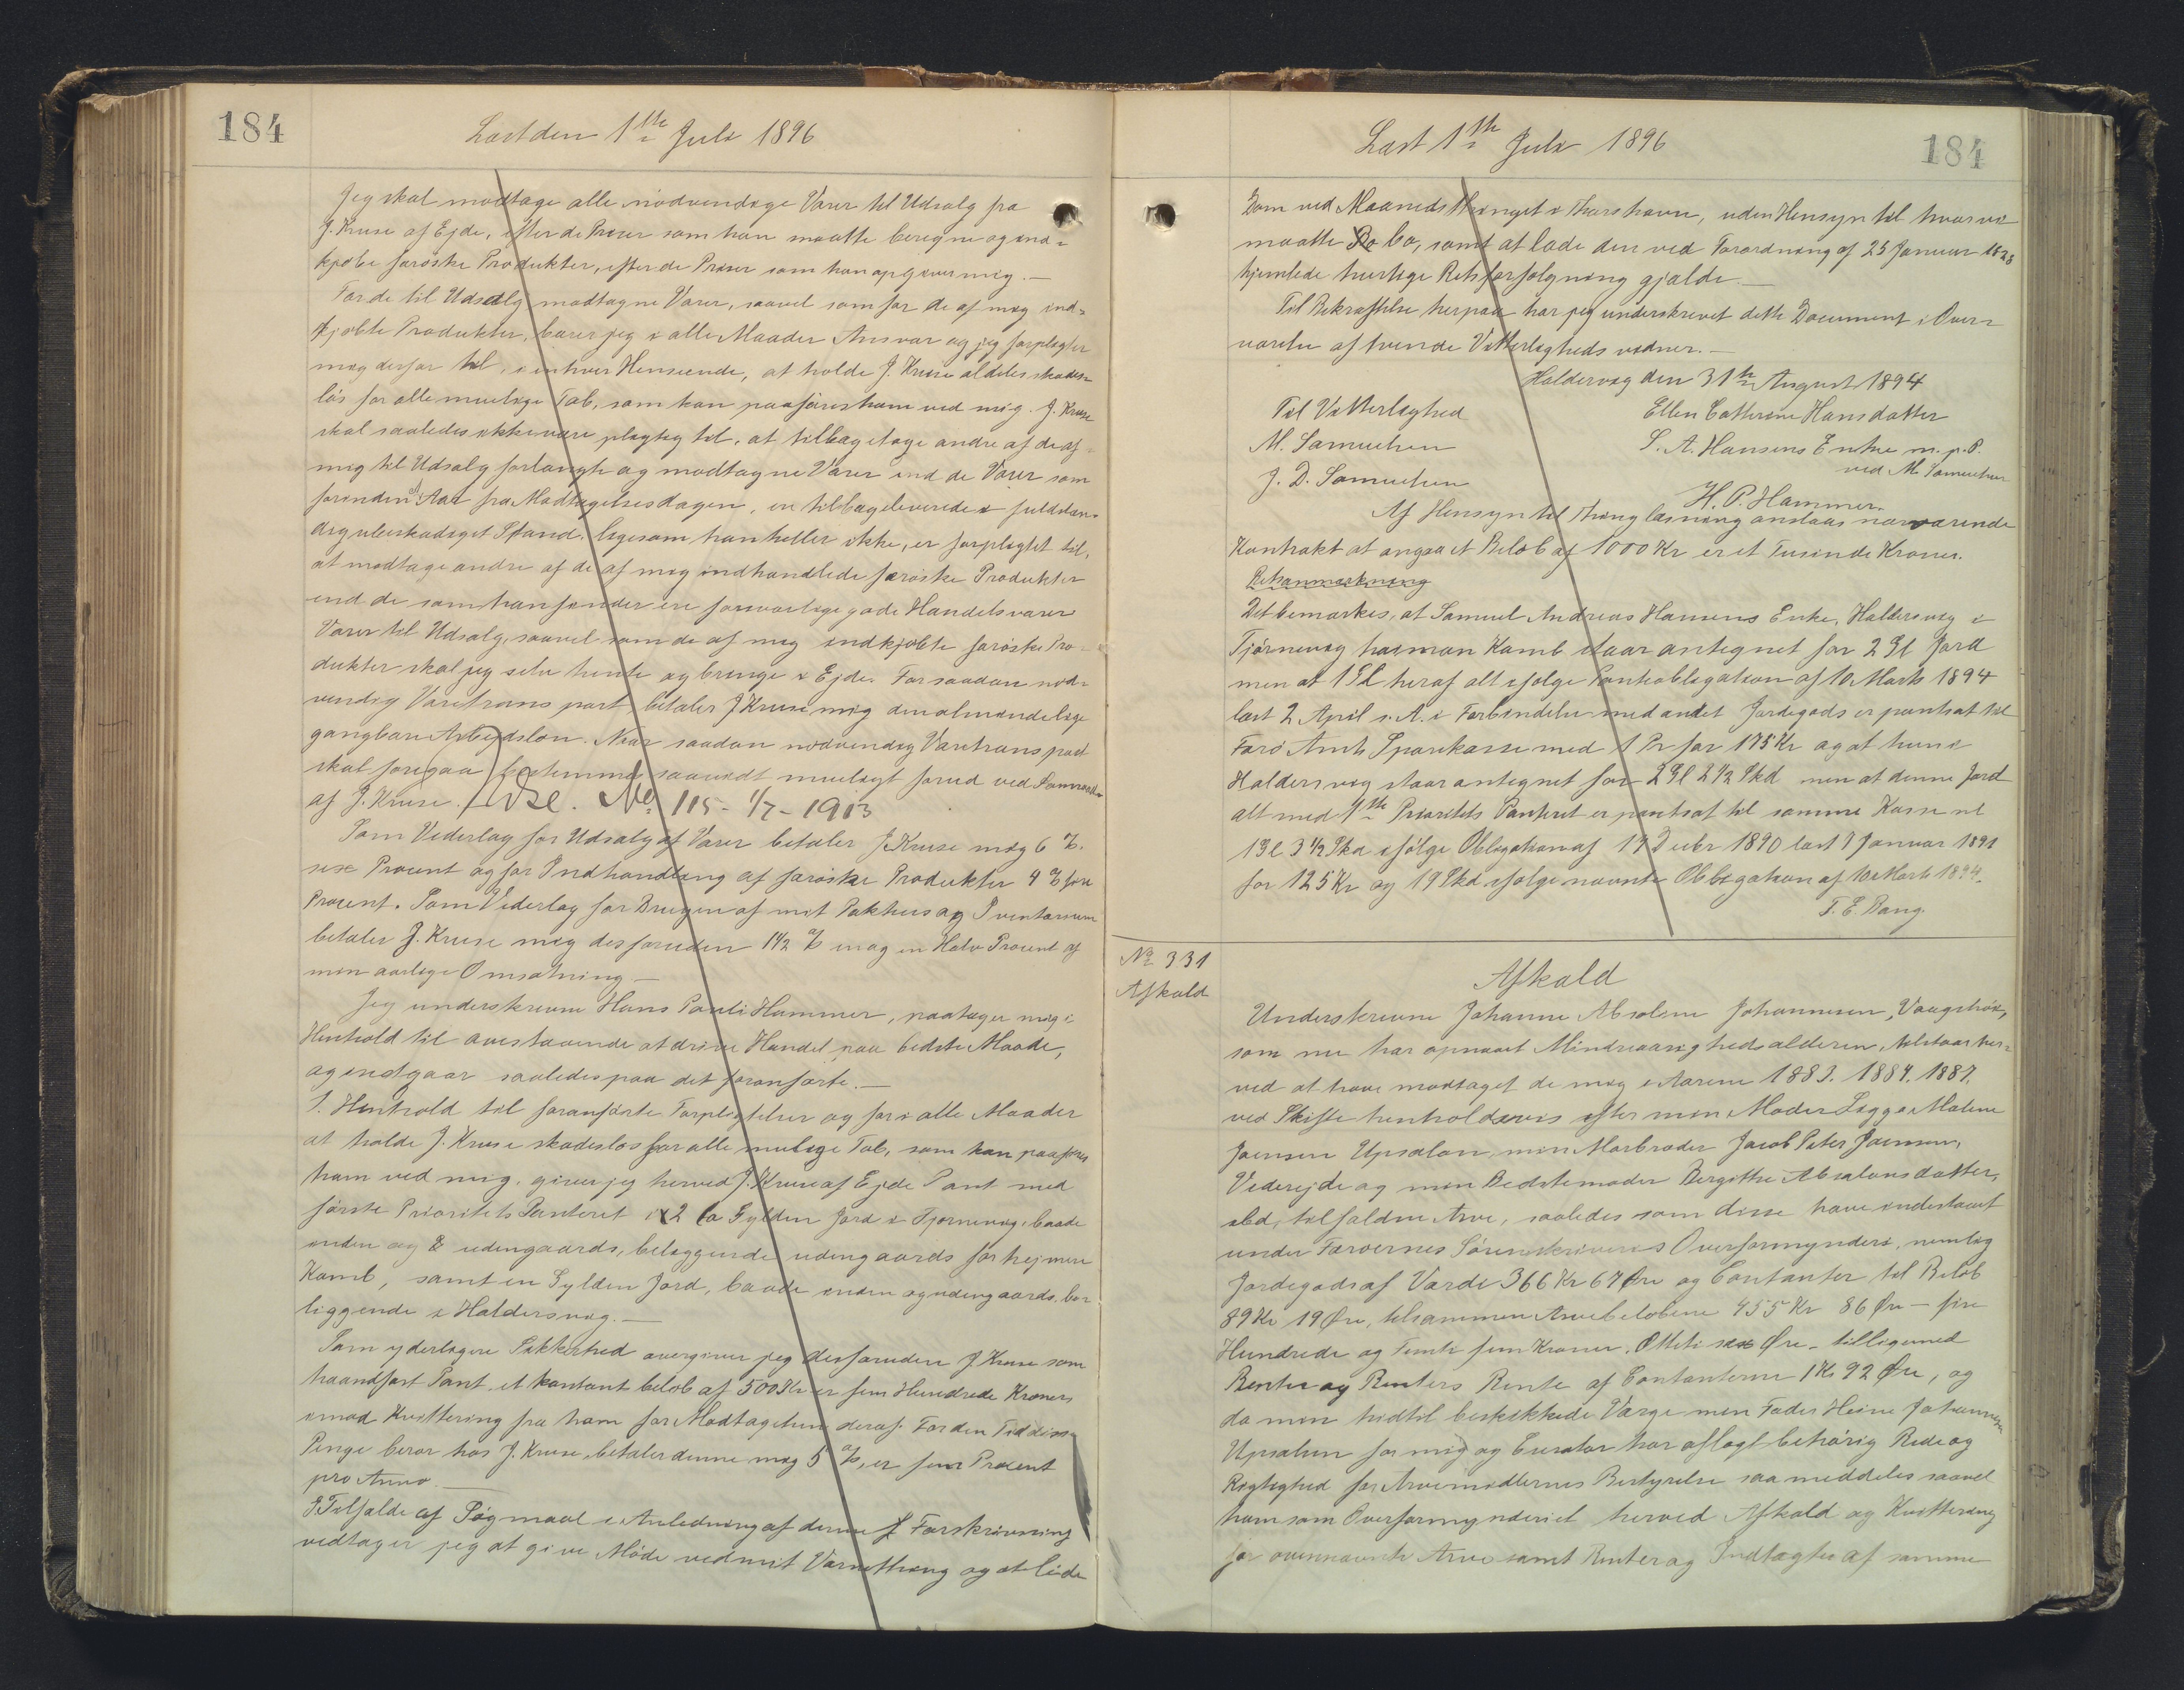 184
Læst den 1ste Juli 1896
Jeg skal modtage alle nödvendige Varer til Udsalg fra
J. Kruse af Ejde, efter de Priser som han maatte beregne og ind=
kjøbe færöske Produkter, efter de Priser som han opgiver mig. —
For de til Udsalg modtagne Varer, saavel som for de af mig ind=
kjøbte Produkter, bærer jeg i alle Maader Ansvar og jeg forpligter
mig derfor til, i enhver Henseende, at holde J. Kruse aldeles skades=
lös for alle muelige Tab, som kan paaføres ham ved mig. J. Kruse
skal saaledes ikke være pligtig til, at tilbagetage andre af de af
mig til Udsalg forlangte og modtagne Varer end de Varer som
forinden Aar fra Modtagelsesdagen, er tilbageleverede i fuldstæn=
dig ubeskadiget Stand, ligesom han heller ikke, er forpligtet til,
at modtage andre af de af mig indhandlede færöiske Produkter
end de som han finder ere forsvarlige gode Handelsvarer
Varer til Udsalg, saavel som de af mig indkjøbte færöske Pro=
dukter skal jeg selv hente og bringe i Ejde. For saadan nöd=
vendig Varetransport, betaler J Kruse mig den almindelige
gangbare Arbejdslön. Naar saadan nödvendig Varetransport
skal foregaa bestemmes saavidt mueligt forud ved Samraad
af J. Kruse. Udsl. No 115 - 1/7 - 1913
Som Vederlag for Udsalg af Varer betaler J Kruse mig 6 %
sex Procent og for Indhandling af færöske Produkter 4 % fire
Procent. Som Vederlag for Brugen af mit Pakhus og Inventarium
betaler J. Kruse mig desforuden 1 1/2 % en og en Halv Procent af
min aarlige Omsætning —
Jeg underskrevne Hans Pauli Hammer, paatager mig i
Henhold til ovestaaende at drive Handel paa bedste Maade,
og indgaar saaledes paa det foranførte. —
I. Henhold til foranførte Forpligtelser og for i alle Maader
at holde J. Kruse skadeslös for alle mulige Tab, som kan paaføres
ham ved mig, giver jeg herved J. Kruse af Ejde Pant med
förste Prioritets Panteret i 2 to Gylden Jord i Tjørnevig, baade
inden og udengaards, beliggende udengaards for hejmen
Kamb, samt en Gylden Jord, baade inden og udengaards, be=
liggende i Haldersvig. —
Som yderligere Sikkerhed overgiver jeg desforuden J Kruse som
haandfast Pant, et kontant belöb af 500 Kr er fem Hundrede Kroner
imod Kvittering fra ham for Modtagelsen deraf. For den Tid disse
Penge beror hos J. Kruse, betaler denne mig 5 %, er fem Procent
pro Anno. —
I Tilfælde af Sögmaal i Anledning af denne Forskrivning
vedtager jeg at give Möde ved mit Værnething og at lide
Læst 1ste Juli 1896
184
Dom ved Maanedsthinget i Thorshavn, uden Hensyn til hvor vi
maatte bo, samt at lade den ved Forordning af 25 Januar 1828
hjemlede hurtige Retsforfølgning gjælde. —
Til Bekræftelse herpaa har jeg underskrevet dette Document i Over=
værelse af tvende Vitterligheds vidner. —
Haldersvig den 31te August 1894
Til Vitterlighed
Ellen Catherine Hansdatter
M. Samuelsen
S. A. Hansens Enke m. p. P.
ved M. Samuelsen
J. D. Samuelsen
H. P. Hammer.
Af Hensyn til Thinglæsning ansl­aas nærværende
Kontrakt at angaa et Belöb af 1000 Kr er et Tusinde Kroner.
Det bemærkes, at Samuel Andreas Hansens Enke, Haldersvig i
Tjørnevig haiman Kamb staar antegnet for 2 Gl Jord
men at 1 Gl heraf alt ifølge Pantobligation af 10 Marts 1894
læst 2 April s. A. i Forbindelse med andet Jordegods er pantsat til
Færö Amts Sparekasse med 1 Pr for 175 Kr og at hun i
Haldersvig staar antegnet for 2 Gl 2 1/2 Skd men at denne Jord
alt med 1ste Prioritets Panteret er pantsat til samme Kasse nl
1 Gl 3 1/2 Skd ifölge Obligation af 17 Decbr 1890 læst 7 Januar 1891
for 125 Kr og 19 Skd ifølge nævnte Obligation af 10 Marts 1894.
T. E. Bang.
No 331
Afkald
Afkald
Underskrevne Johanne Absolone Johannesen, Vaagshöv,
som nu har opnaaet Mindreaarighedsalderen, tilstaar her=
ved at have modtaget de mig i Aarene 1883. 1884. 1887,
ved Skifte henholdsvis efter min Moder Sigga Malene
Joensen Upsalon, min Morbroder Jacob Peter Joensen,
Viderejde og min Bedstemoder Bergitthe Absalonsdatter,
sbd, tilfaldne Arve, saaledes som disse have indestaaet
under Færøernes Sorenskriveris Overformynderi, nemlig
Jordegods af Værdi 366 Kr 67 Øre og Contanter til Belöb
89 Kr 19 Øre, tilsammen Arvebelöbene 455 Kr 86 Øre — fire
Hundrede og Femti fem Kroner, Otteti sex Øre — tilligemed
Renter og Renters Rente af Contanterne 1 Kr 92 Øre, og
da min hidtil beskikkede Værge min Fader Heine Johannesen
Upsalen for mig og Curator har aflagt behørig Rede og
Rigtighed for Arvemidlernes Bestyrelse saa meddeles saavel
ham som Overformynderiet herved Afkald og Kvittering
for ovennævnte Arve samt Renter og Indtægter af samme